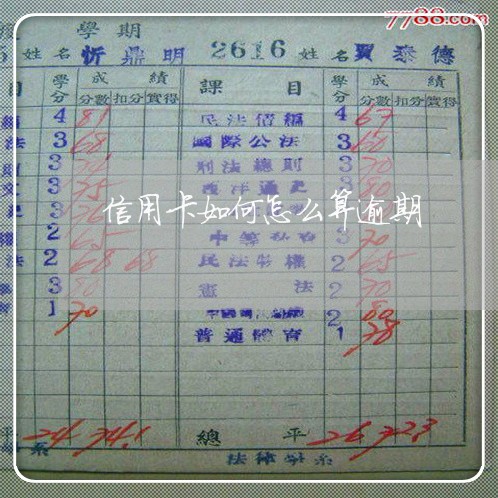 7788.com
學期
5 姓名 忻鼎明 2616 姓名 賈泰德
目 學分 成績 課目 學分 成績
分數 扣分 實得 分數 扣分 實得
4 81 民法債編 4 67
法 3 68 國際公法 3 60
3 刑法總則 3 70
文 3 75 西洋通史 3 80
信用卡如何怎么算逾期
權 2 65 3 70
法 2 68 68 民法物權 2 65
3 80 憲法 2 70
育 1 70 2 80
普通體育 1 78
平 24 74.1 總平 26 72.3
系 法律學系